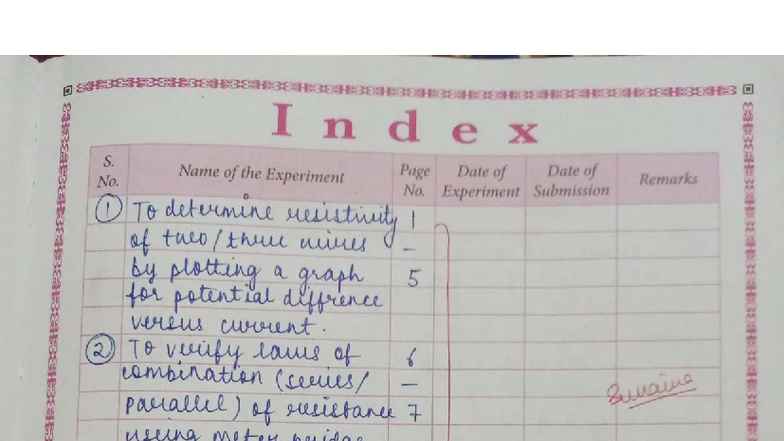 Index
S. No. Name of the Experiment Page No. Date of Experiment Date of Submission Remarks
① To determine resistivity 1
of two/three wires –
by plotting a graph 5
for potential diffrence
versus current.
② To verify laws of 6
combination (series/ –
parallel) of resistance 7
using meter bridge